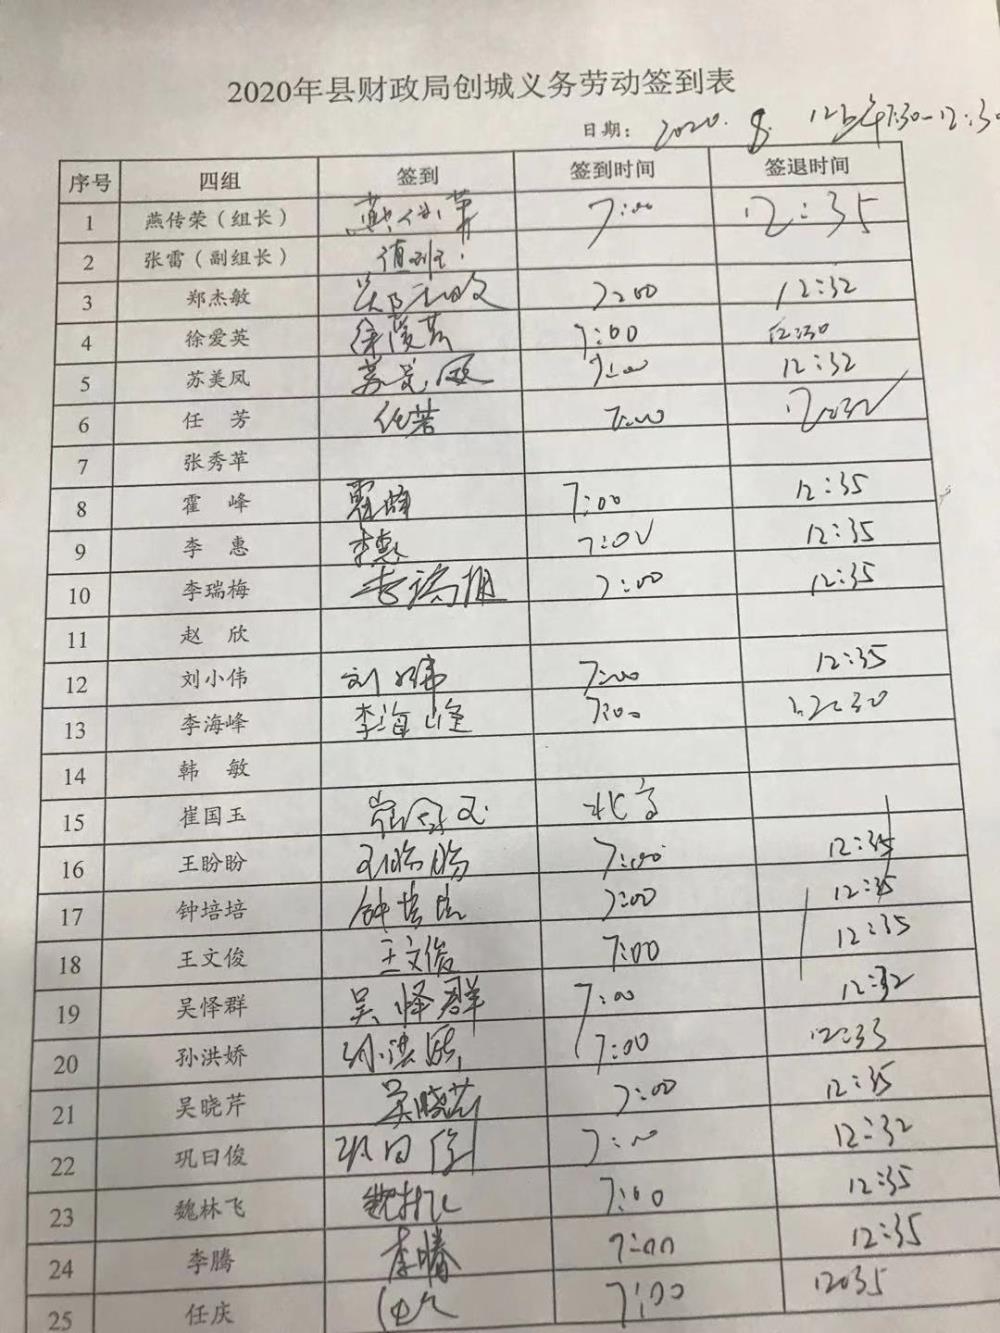 2020年县财政局创城义务劳动签到表
日期: 2020. 8. 12上午7:30-12:30
序号 四组 签到 签到时间 签退时间
1 燕传荣（组长） 燕传荣 7:00 12:35
2 张雷（副组长） 值班
3 郑杰敏 郑杰敏 7:00 12:32
4 徐爱英 徐爱英 7:00 12:30
5 苏美凤 苏美凤 7:00 12:32
6 任 芳 任芳 7:00 12:32
7 张秀苹
8 霍 峰 霍峰 7:00 12:35
9 李 惠 李惠 7:00 12:35
10 李瑞梅 李瑞梅 7:00 12:35
11 赵 欣
12 刘小伟 刘小伟 7:00 12:35
13 李海峰 李海峰 7:00 12:30
14 韩 敏
15 崔国玉 崔国玉 北京
16 王盼盼 王盼盼 7:00 12:35
17 钟培培 钟培培 7:00 12:35
18 王文俊 王文俊 7:00 12:35
19 吴怿群 吴怿群 7:00 12:32
20 孙洪娇 孙洪娇 7:00 12:33
21 吴晓芹 吴晓芹 7:00 12:35
22 巩曰俊 巩曰俊 7:00 12:32
23 魏林飞 魏林飞 7:00 12:35
24 李腾 李腾 7:00 12:35
25 任庆 7:00 12:35